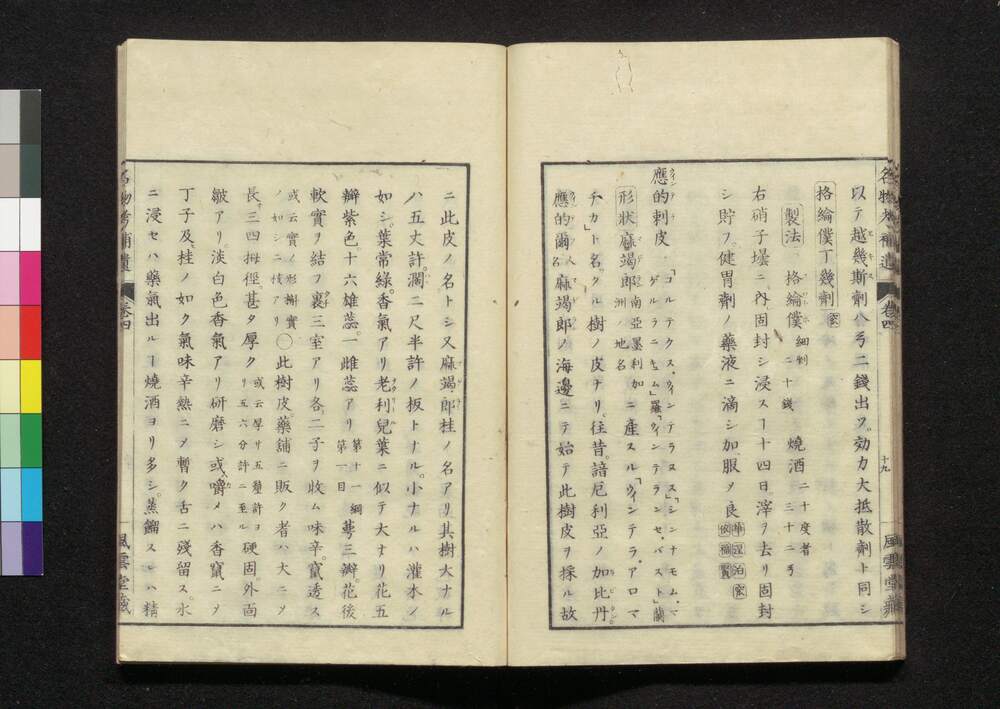 以テ越幾斯劑八弓二錢出ツ。効力大抵散劑ト同シ
格綸僕丁幾劑
製法 格綸僕 細剉二十錢 燒酒 二十度者三十二弓
右硝子壜ニ內固封シ浸スヿ十四日。滓ヲ去リ固封
シ貯フ。健胃劑ノ藥液ニ滴シ加服ヲ良
應的剌皮 「コルテクス・ウィンテラヌス」「シンナモム・マゲルラニキュム」羅「ウィンテランセ・バスト」蘭
形狀 麻竭郎 南亞墨利加洲ノ地名 ニ產スル「ウィンテラ・アロマ
チカ」ト名クル樹ノ皮ナリ。往昔。諳厄利亞ノ加比丹
應的爾 人名 麻竭郎ノ海邊ニテ始テ此樹皮ヲ採ル故
名物考補遺 卷四 十九 風雲堂藏
ニ此皮ノ名トシ又麻竭郎桂ノ名アリ其樹大ナル
ハ五丈許。濶二尺半許ノ板トナル。小ナルハ灌木ノ
如シ。葉常綠。香氣アリ老利兒葉ニ似テ大ナリ花五
瓣紫色。十六雄蕊。一雌蕊アリ 第十一綱第一目 萼三瓣。花後
軟實ヲ結フ裏三室アリ各二子ヲ收ム味辛。竄透ス
或云實ノ形槲實ノ如シニ稜アリ ○此樹皮藥舖ニ販ク者ハ大ニメ
長三四拇徑。甚タ厚ク 或云厚サ五釐許ヨリ五六分許ニ至ル 硬固。外面
皺アリ。淡白色香氣アリ研磨シ或嚼メハ香竄ニメ
丁子及桂ノ如ク氣味辛熱ニメ暫ク舌ニ殘留ス。水
ニ浸セハ藥氣出ルヿ燒酒ヨリ多シ。蒸餾スレハ精
名物考補遺 卷四 風雲堂藏